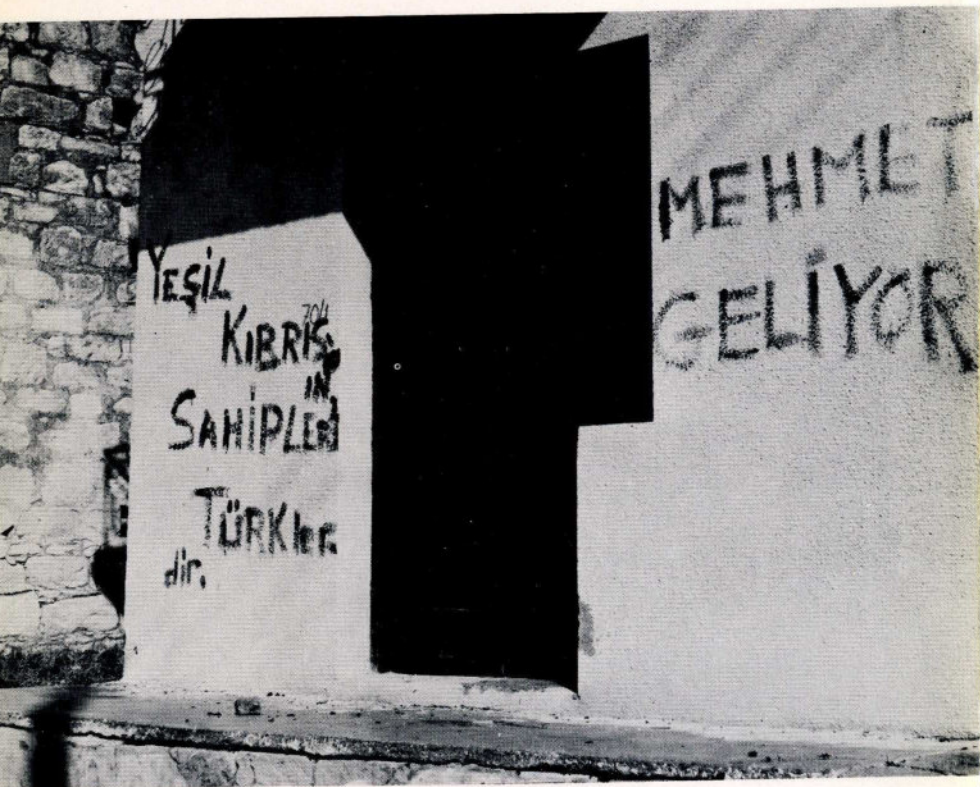 YEŞİL
KIBRIS,
IN
SAHİPLERİ
TÜRKler
dir.
MEHMET
GELİYOR